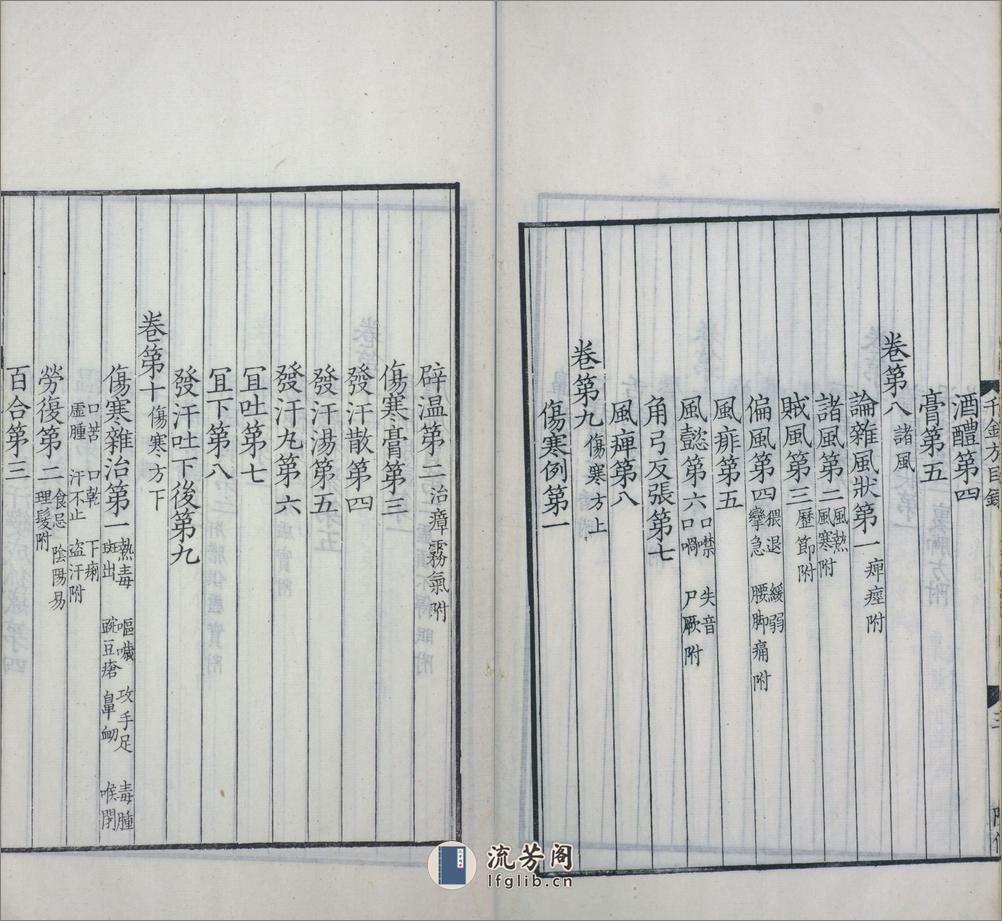 千金方目錄
酒醴第四
膏第五
卷第八 諸風
論雜風狀第一 痺痙附
諸風第二 風熱 風寒附
賊風第三 歷節附
偏風第四 猥退 緩弱 攣急 腰脚痛附
風痱第五
風懿第六 口噤 失音 口喎 尸厥附
角弓反張第七
風痺第八
卷第九 傷寒方上
傷寒例第一
辟温第二 治瘴霧氣附
傷寒膏第三
發汗散第四
發汗湯第五
發汗丸第六
冝吐第七
冝下第八
發汗吐下後第九
卷第十 傷寒方下
傷寒雜治第一 熱毒 嘔噦 攻手足 毒腫 斑出 豌豆瘡 鼻衂 喉閉
口苦 口乾 下痢 虛腫 汗不止 盗汗附
勞復第二 食忌 陰陽易 理髮附
百合第三
流芳阁
lfglib.cn